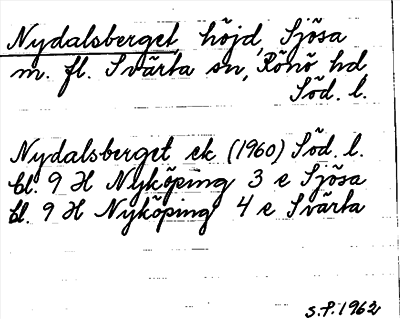 Nydalsberget höjd, Sjösa
m. fl. Svärta sn, Rönö hd,
Söd. l.
Nydalsberget ek (1960) Söd. l.
bl. 9 H Nyköping 3 e Sjösa
bl. 9 H Nyköping 4 e Svärta
S.P. 1962